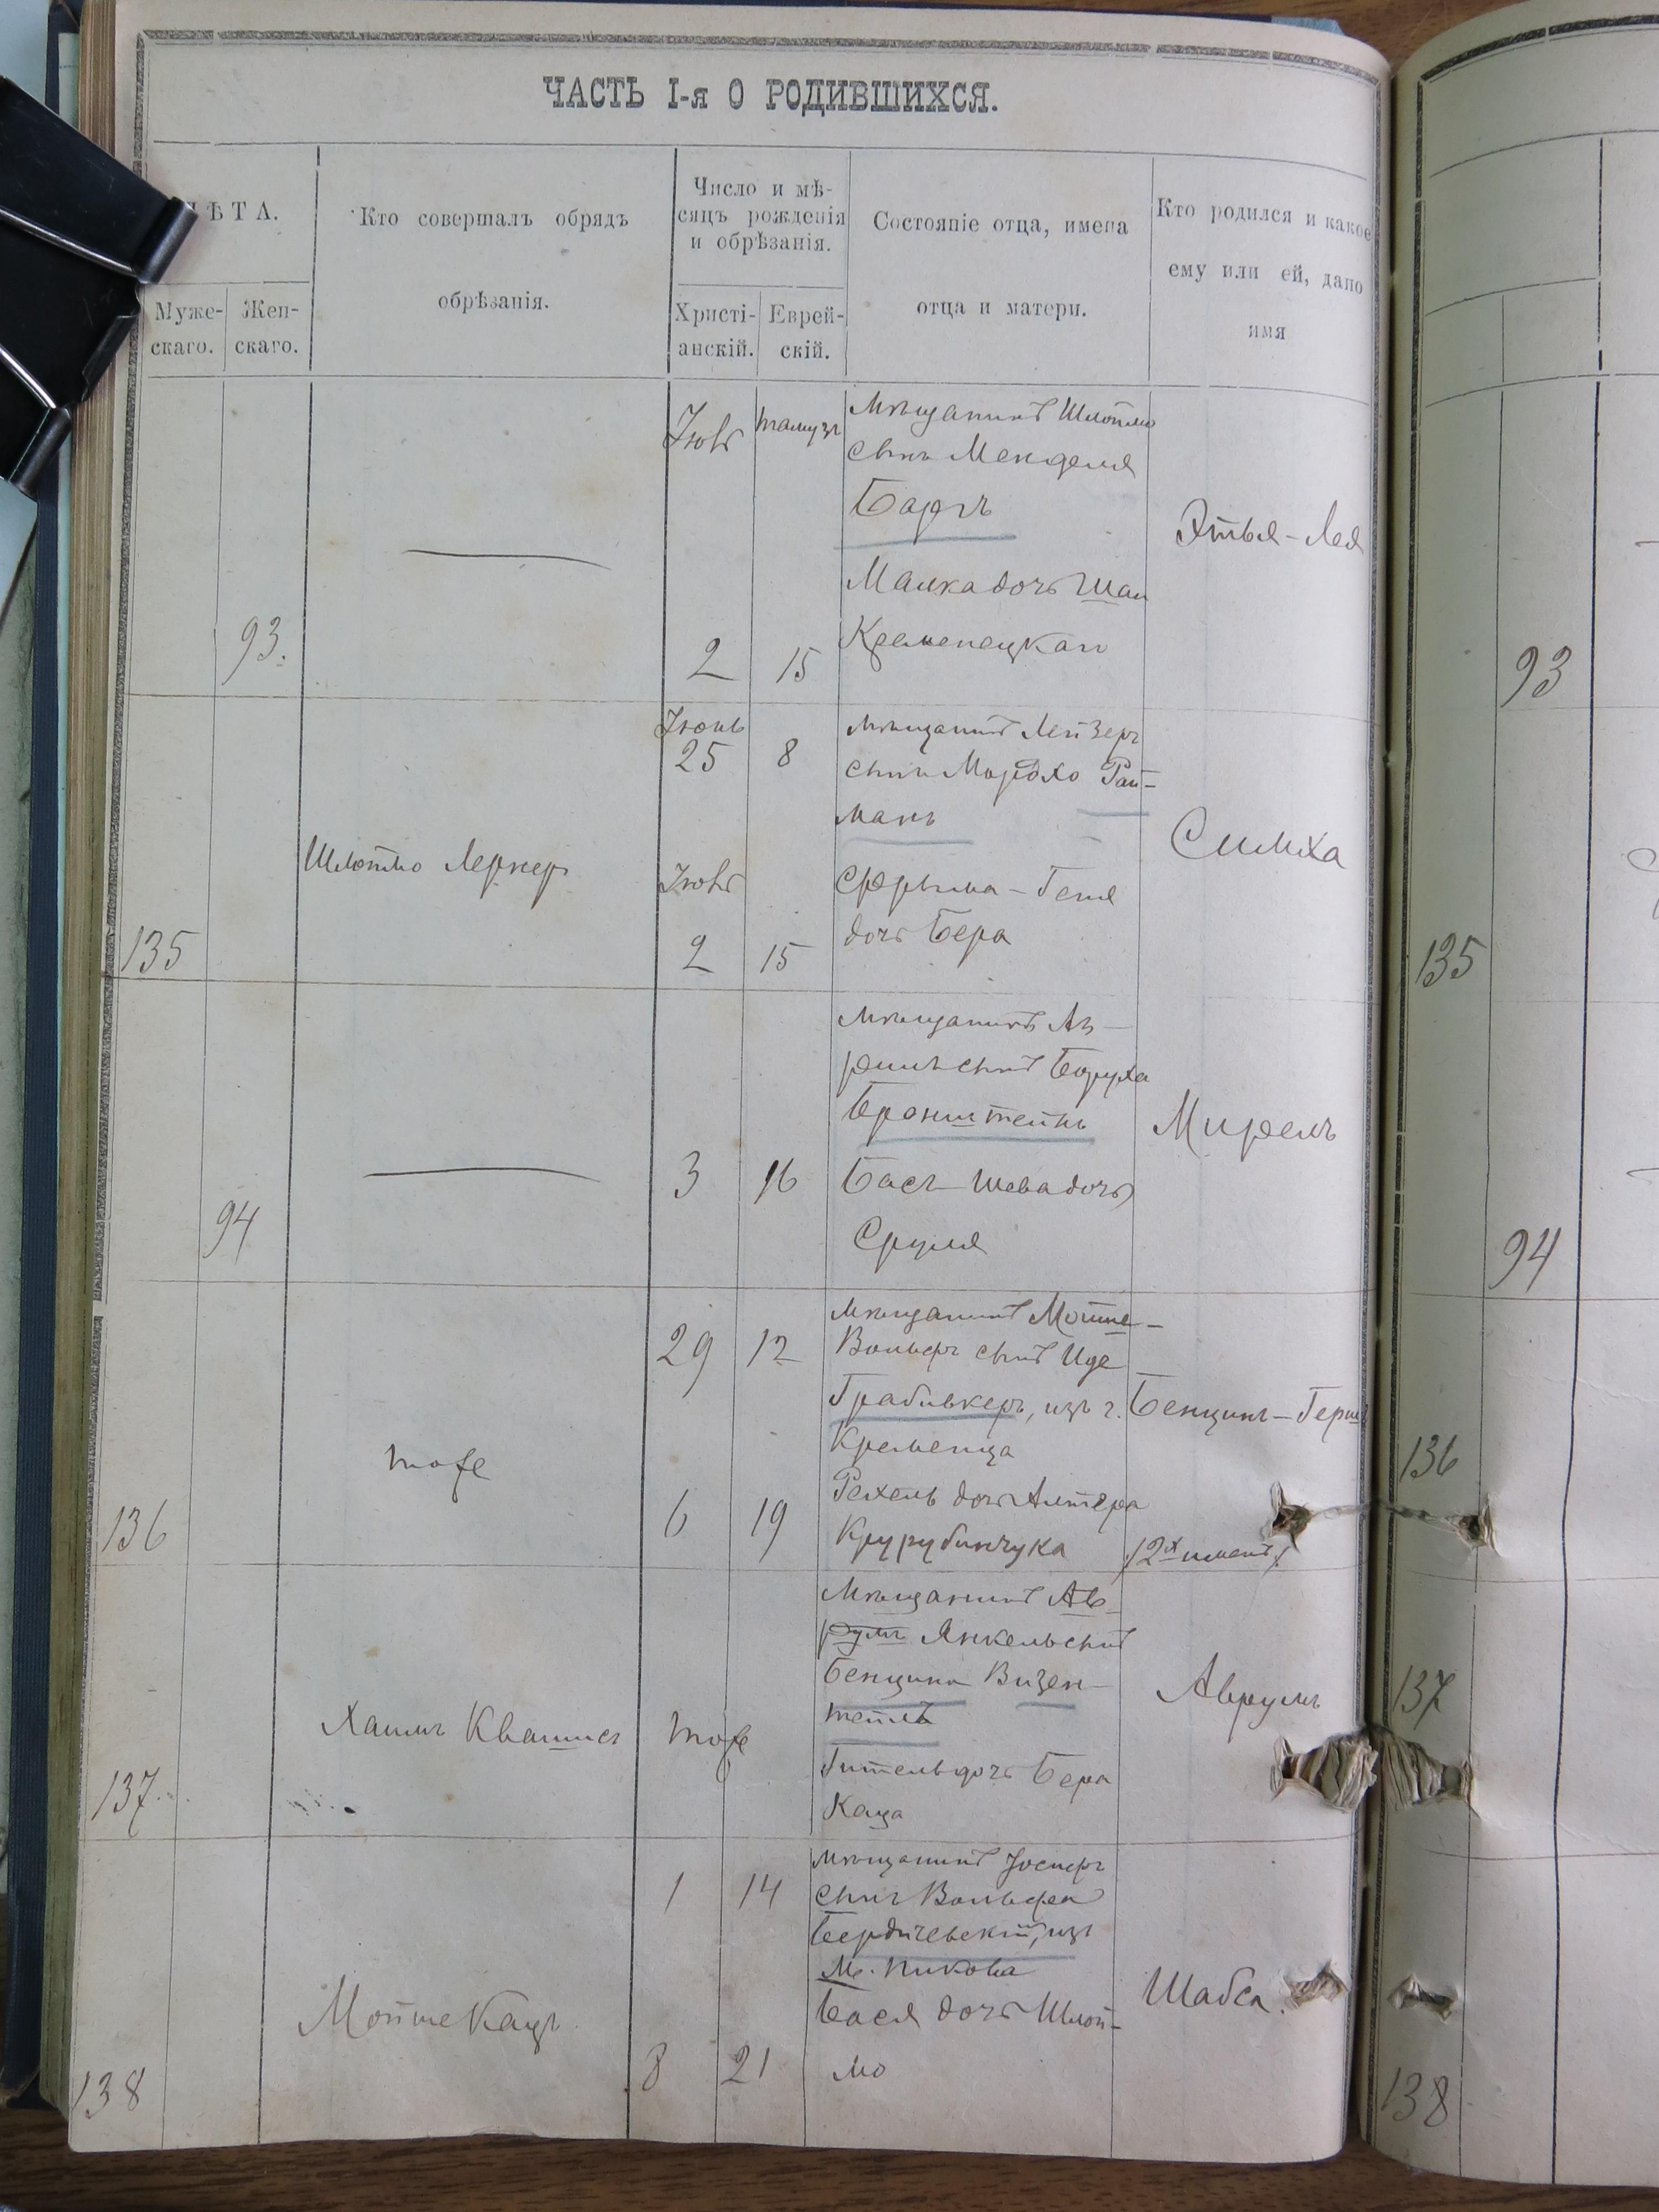 ЧАСТЬ I-я О РОДИВШИХСЯ.
ѢТА.
Муже-
скаго.
Жен-
скаго.
Кто совершалъ обрядъ
обрѣзанія.
Число и мѣ-
сяцъ рожденія
и обрѣзанія.
Христі-
анскій.
Еврей-
скій.
Состояніе отца, имена
отца и матери.
Кто родился и какое
ему или ей, дано
имя
93.
Тамузъ
2
15
Мѣщанинъ Шлоймо
сынъ Менделя
Баргъ
Малка дочь
Кременецкаго
Этья-Лея
93
135
Шлоймо Лернеръ
Іюнь
25
8
2
15
мѣщанинъ Лейзеръ
сынъ Мордхо Рай-
манъ
Фрыма-Геня
дочь Бера
Симха
135
94
3
16
мѣщанинъ Аз-
риль сынъ Боруха
Бронштейнъ
Бася-Шева дочь
Сруля
Мирель
94
136
тоже
29
12
6
19
Мѣщанинъ Мойше-
Вольфъ сынъ Иде
Грабивкеръ, изъ г.
Кременца
Рехель дочь Алтера
Бенционъ-Гершъ
/2хъ именъ/.
136
137.
Хаимъ Квашисъ
тоже
Мѣщанинъ Ав-
румъ Янкель сынъ
Бенциона Визен-
тейлъ
Гитель дочь Бера
Каца
Аврумъ
137
138
Мойше Кацъ
1
14
8
21
мѣщанинъ Іосифъ
сынъ Вольфа
Бердичевскій, изъ
М. Пикова
Бася дочь Шлой-
мо
Шабса.
138